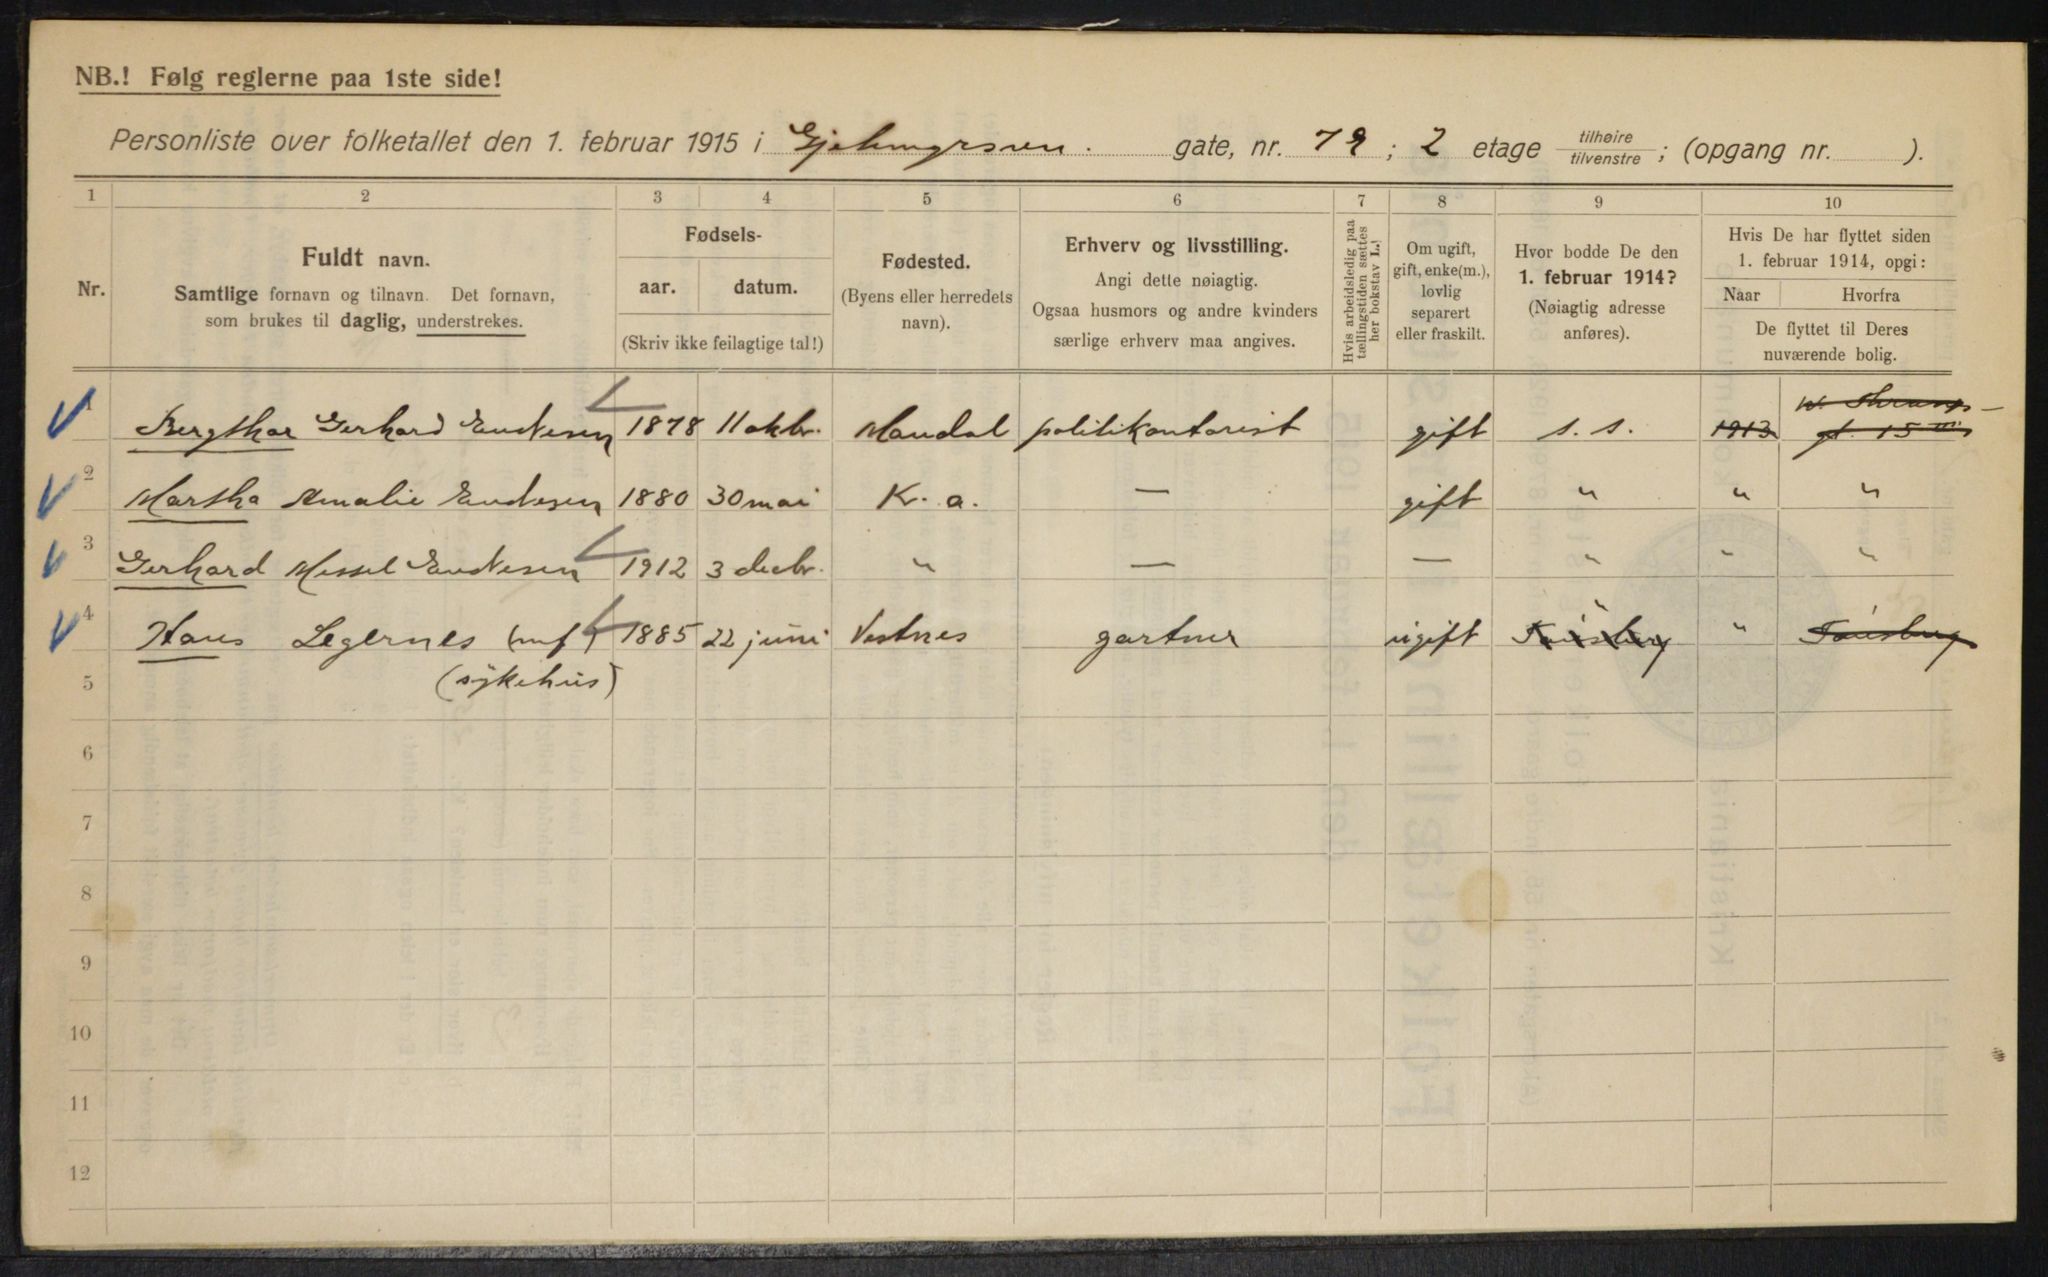 NB.! Følg reglerne paa 1ste side!
Personliste over folketallet den 1. februar 1915 i Gjetemyrsvn. gate, nr. 79; 2 etage tilhøire/tilvenstre; (opgang nr. ).
1 2 3 4 5 6 7 8 9 10
Nr.
Fuldt navn.
Samtlige fornavn og tilnavn. Det fornavn,
som brukes til daglig, understrekes.
Fødsels-
aar. datum.
(Skriv ikke feilagtige tal!)
Fødested.
(Byens eller herredets
navn).
Erhverv og livsstilling.
Angi dette nøiagtig.
Ogsaa husmors og andre kvinders
særlige erhverv maa angives.
Hvis arbeidsledig paa
tællingstiden sættes
her bokstav L.!
Om ugift,
gift, enke(m.),
lovlig
separert
eller fraskilt.
Hvor bodde De den
1. februar 1914?
(Nøiagtig adresse
anføres).
Hvis De har flyttet siden
1. februar 1914, opgi:
Naar Hvorfra
De flyttet til Deres
nuværende bolig.
1 Bergthor Gerhard Endresen 1878 11 oktbr. Mandal politikontorist gift s. s. 1913 gt. 15 III
2 Martha Amalie Endresen 1880 30 mai K. a. — gift " " "
3 Gerhard Messel Endresen 1912 3 decbr. " — — " " "
4 Hans Legernes (mf) 1885 22 juni Vestnes gartner ugift " Tønsberg " Tønsberg
(sykehus)
5
6
7
8
9
10
11
12